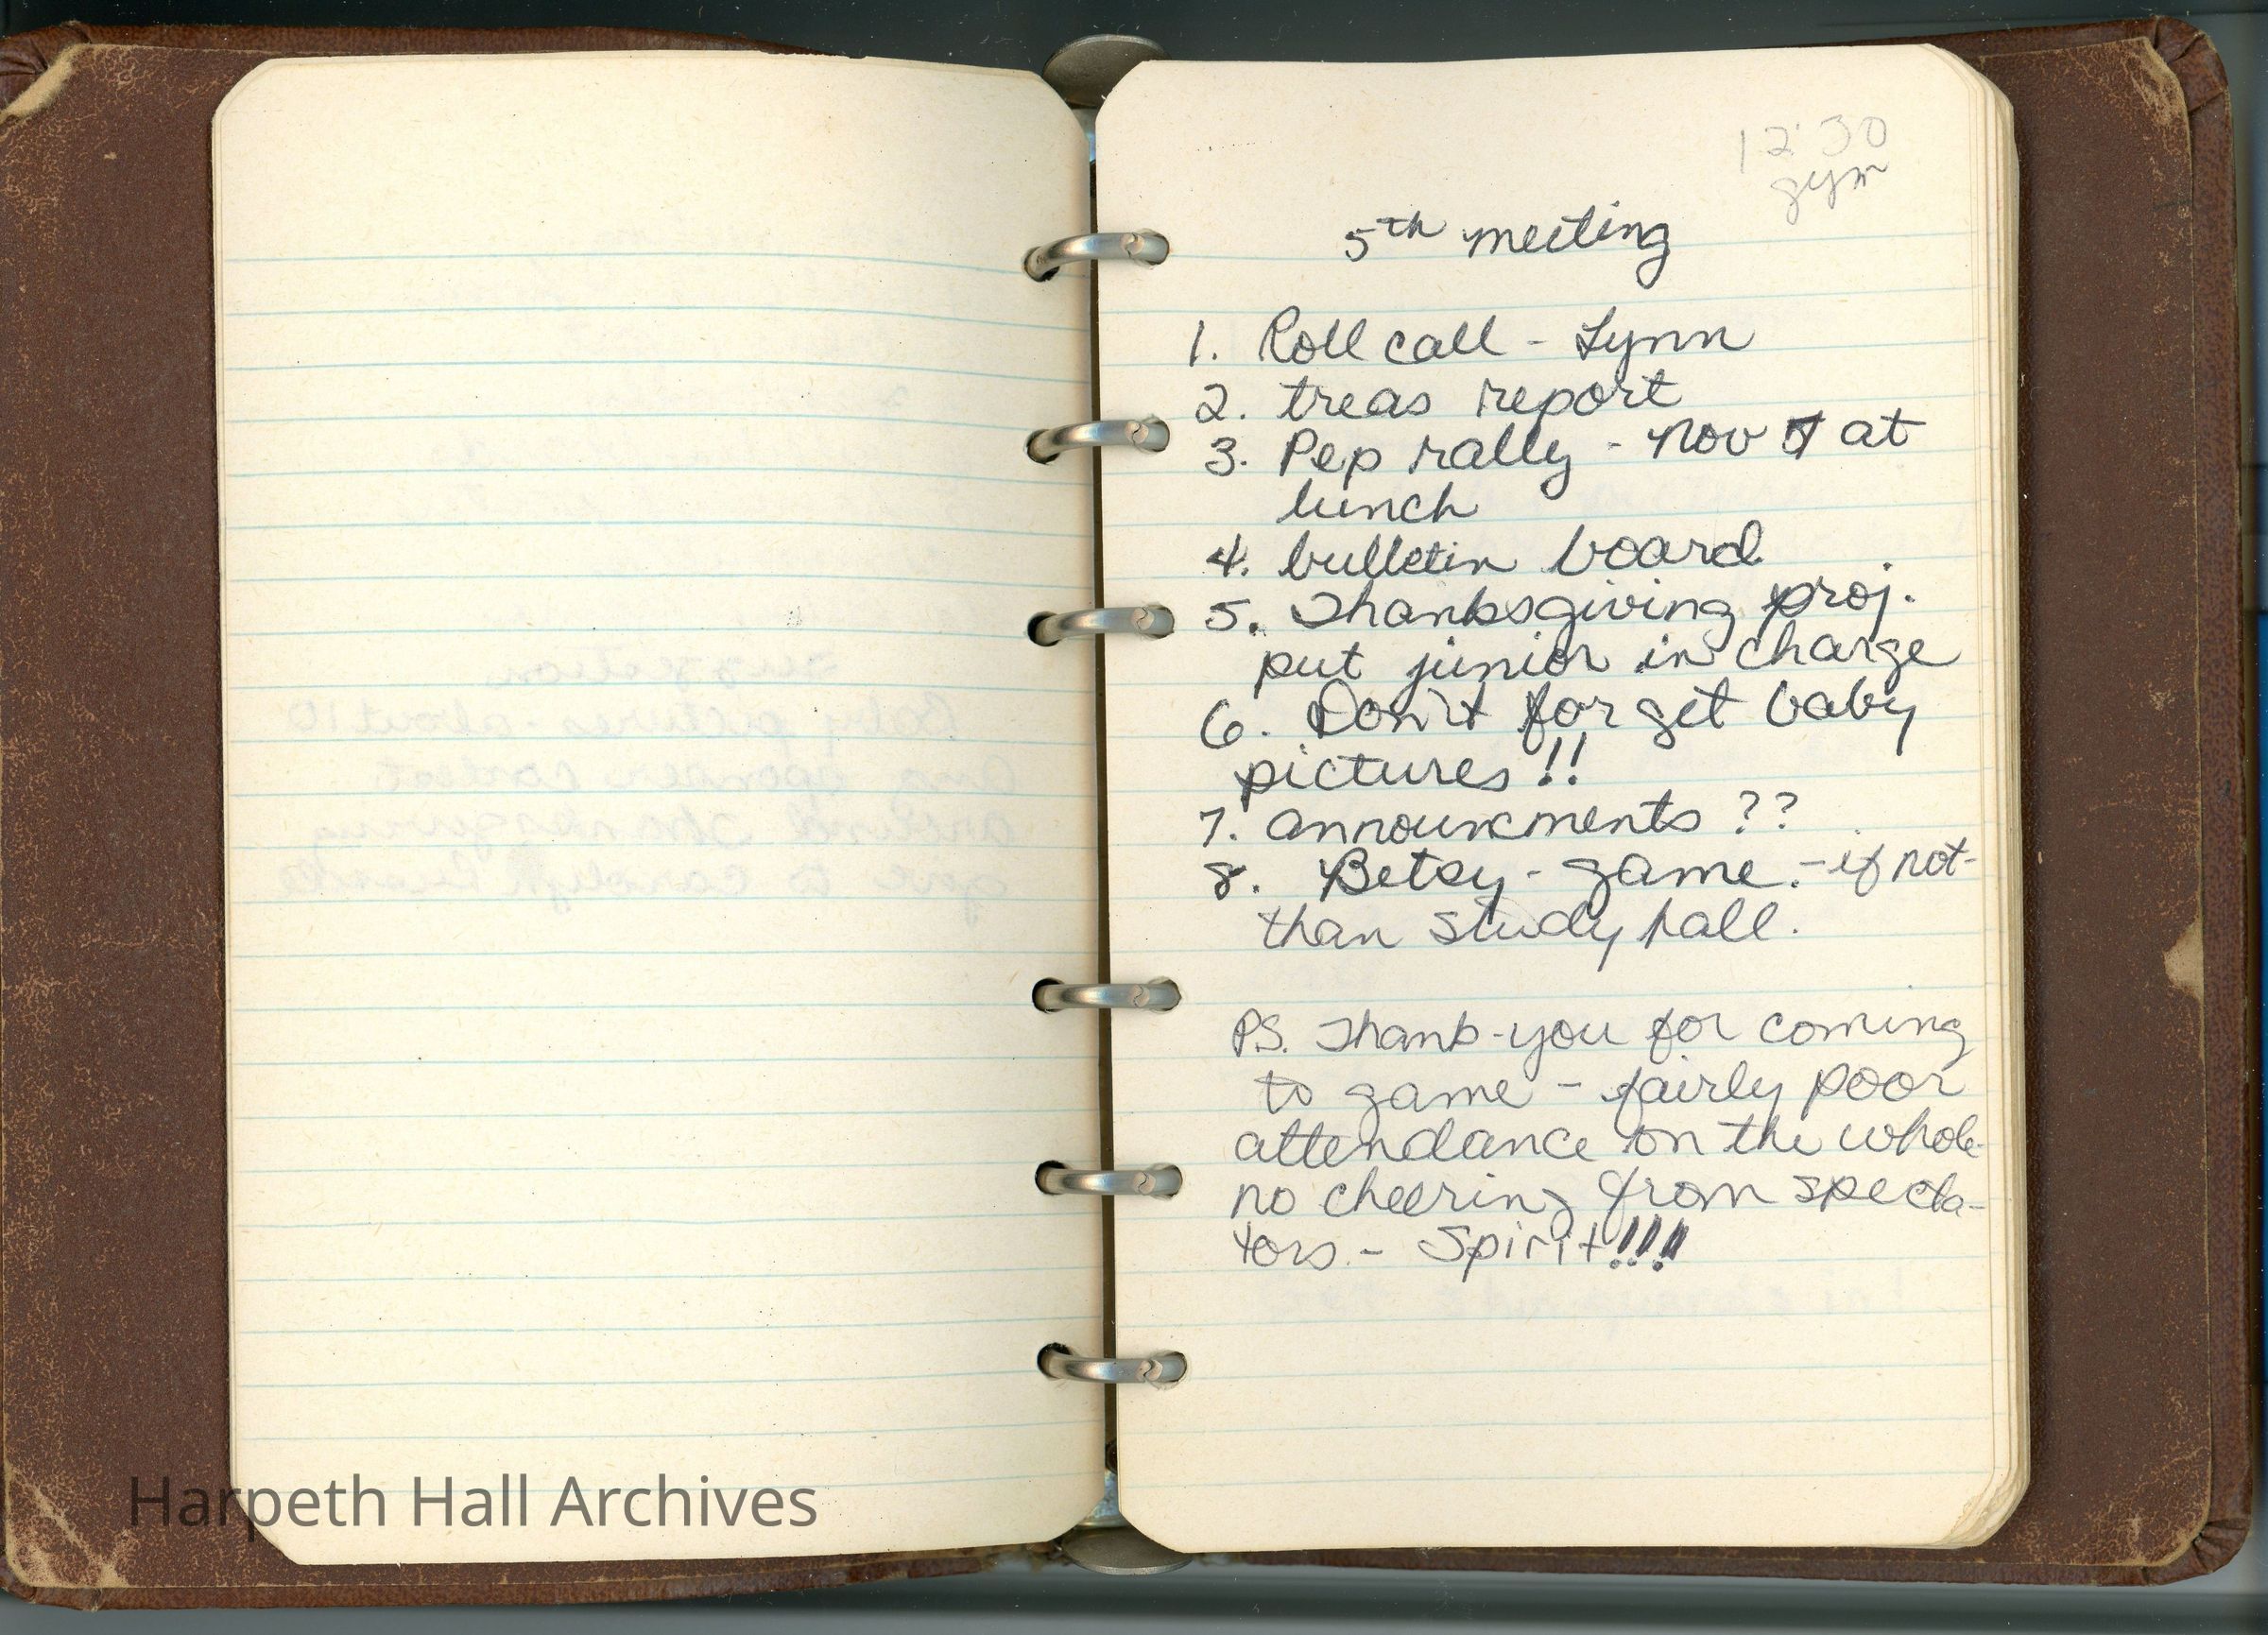 12:30
gym
5th meeting
1. Roll call - Lynn
2. treas report
3. Pep rally - Nov 7 at
lunch
4. bulletin board
5. Thanksgiving proj.
put junior in charge
6. Don't forget baby
pictures!!
7. announcments ??
8. Betsy - game. - if not -
than study hall.
P.S. Thank-you for coming
to game - fairly poor
attendance on the whole -
no cheering from specta-
tors. - Spirit!!!!
Harpeth Hall Archives